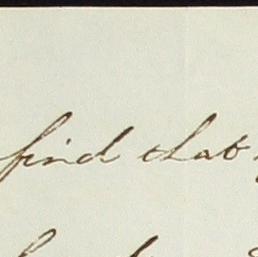 find that